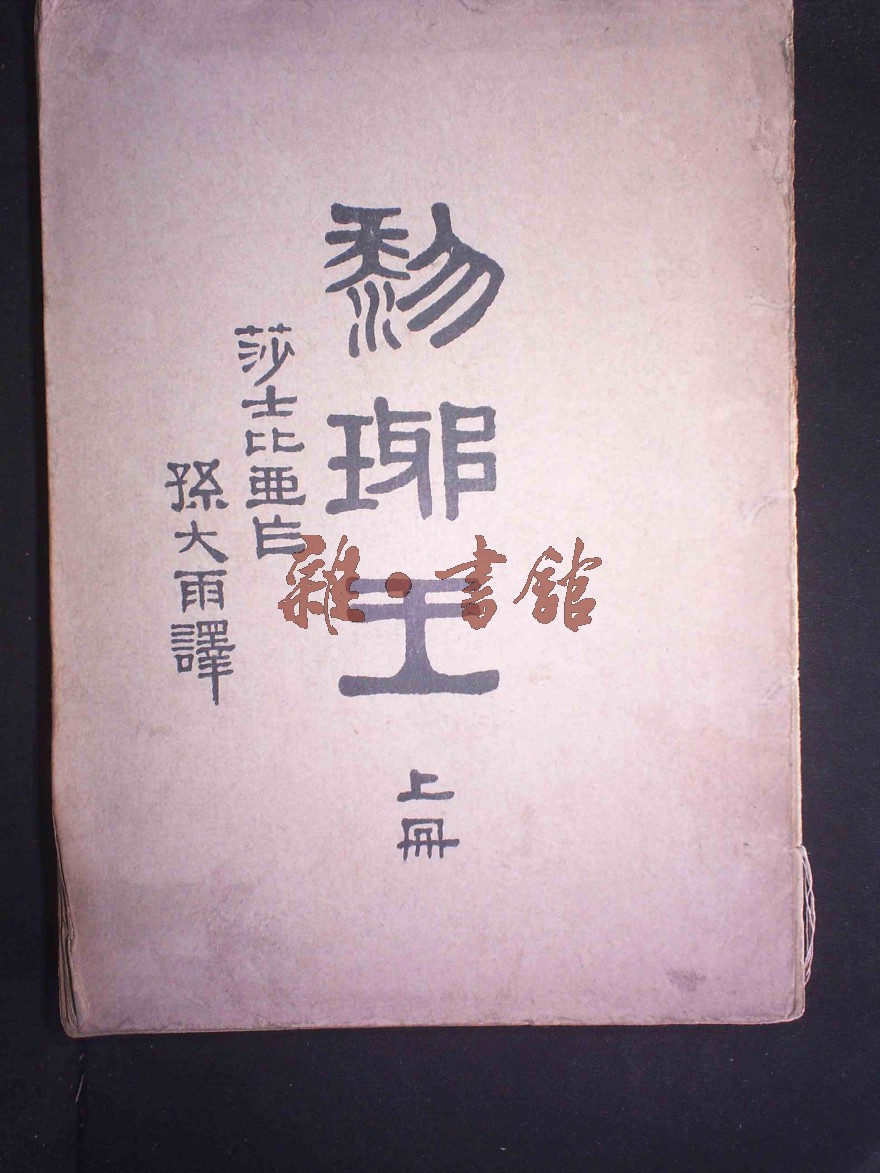 黎琊王
上冊
莎士比亞
孫大雨譯
雜·書館